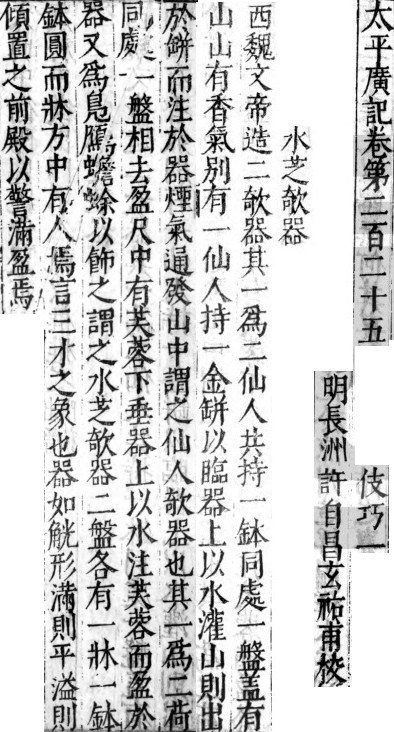 太平廣記卷第二百二十五
伎巧一
明長洲 許自昌玄祐甫校
水芝欹器
西魏文帝造二欹器其一爲二仙人共持一鉢同處一盤盖有
山山有香氣别有一仙人持一金缾以臨器上以水灌山則出
於缾而注於器煙氣通發山中謂之仙人欹器也其一爲二荷
同處一盤相去盈尺中有芙蓉下垂器上以水注芙蓉而盈於
器又爲鳧鴈蟾蜍以飾之謂之水芝欹器二盤各有一牀一鉢
鉢圓而牀方中有人焉言三才之象也器如觥形滿則平溢則
傾置之前殿以警滿盈焉